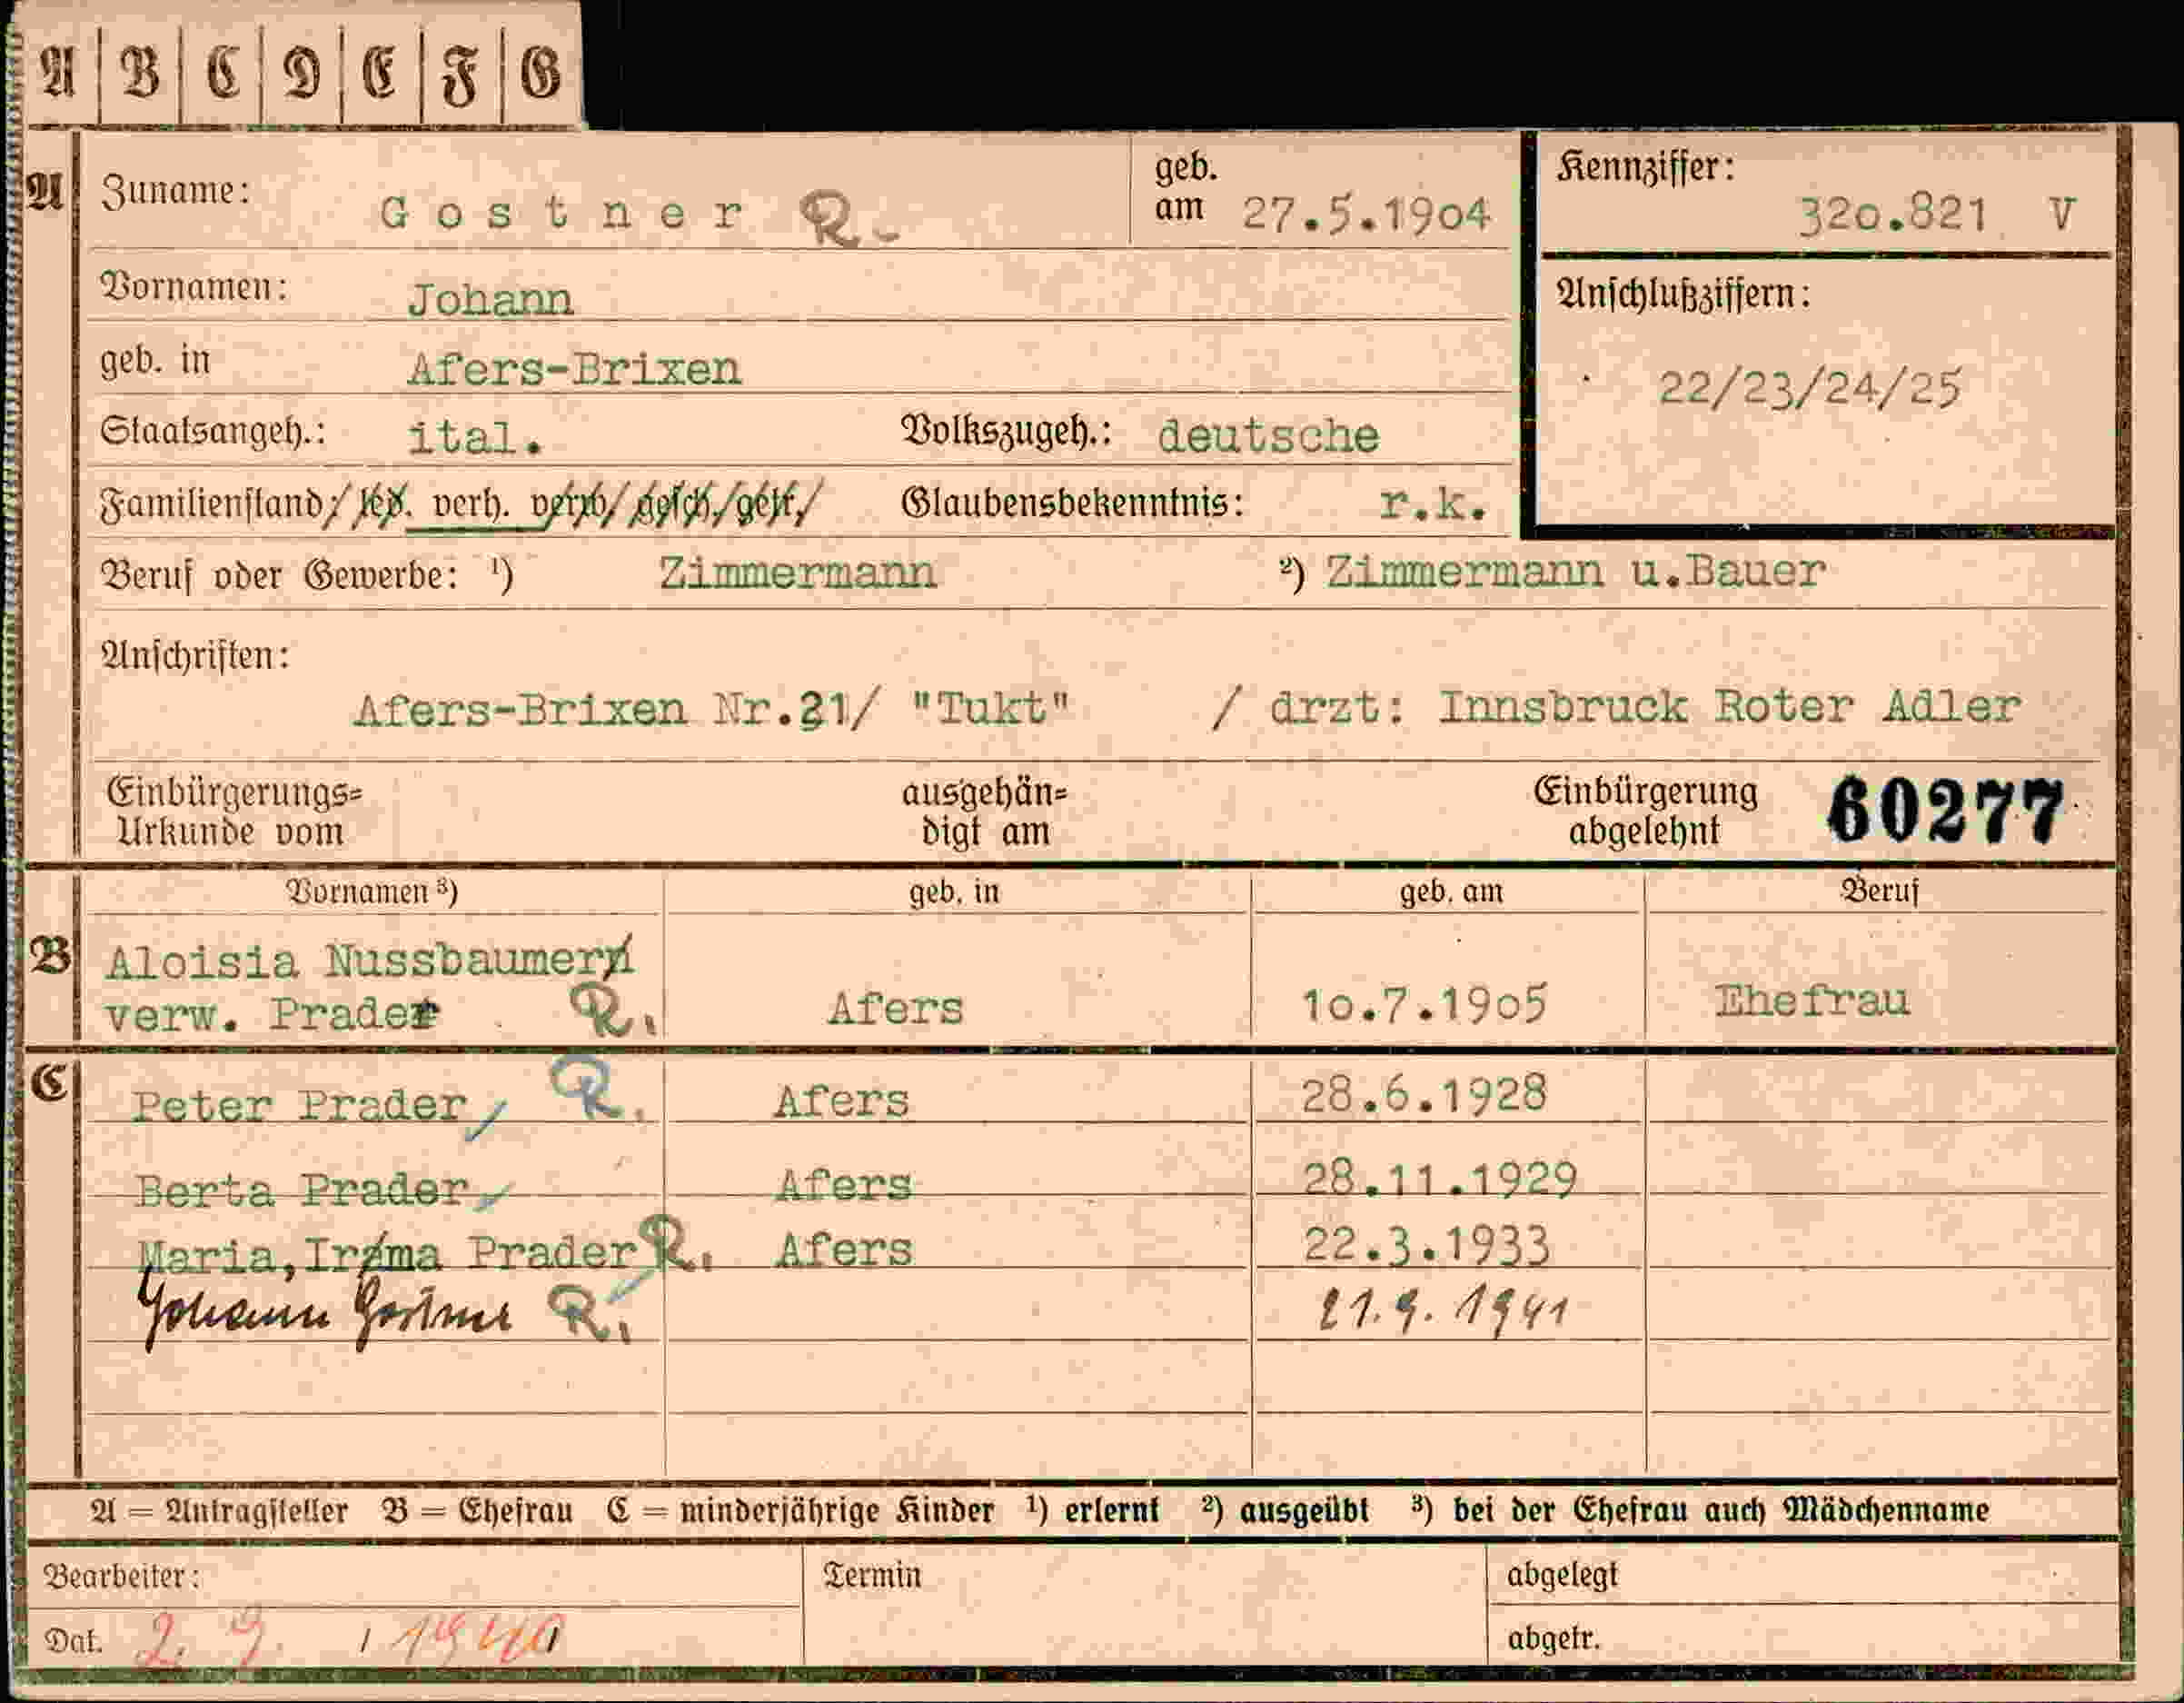 A | B | C | D | E | F | G
A Zuname: Gostner R. geb. am 27.5.1904 Kennziffer: 320.821 V
Vornamen: Johann Anschlußziffern:
geb. in Afers-Brixen 22/23/24/25
Staatsangeh.: ital. Volkszugeh.: deutsche
Familienstand: led. verh. verw. gesch. getr. Glaubensbekenntnis: r.k.
Beruf oder Gewerbe: ¹) Zimmermann ²) Zimmermann u.Bauer
Anschriften:
Afers-Brixen Nr.31/ "Tukt" / drzt: Innsbruck Roter Adler
Einbürgerungs= ausgehän= Einbürgerung 60277
Urkunde vom digt am abgelehnt
Vornamen ³) geb. in geb. am Beruf
B Aloisia Nussbaumer
verw. Prader R. Afers 10.7.1905 Ehefrau
C Peter Prader R. Afers 28.6.1928
Berta Prader Afers 28.11.1929
Maria,Irma Prader R. Afers 22.3.1933
Johann Gostner R. 21.9.1941
A = Antragsteller B = Ehefrau C = minderjährige Kinder ¹) erlernt ²) ausgeübt ³) bei der Ehefrau auch Mädchenname
Bearbeiter: Termin abgelegt
Dat. 2. 9. 1940 abgetr.